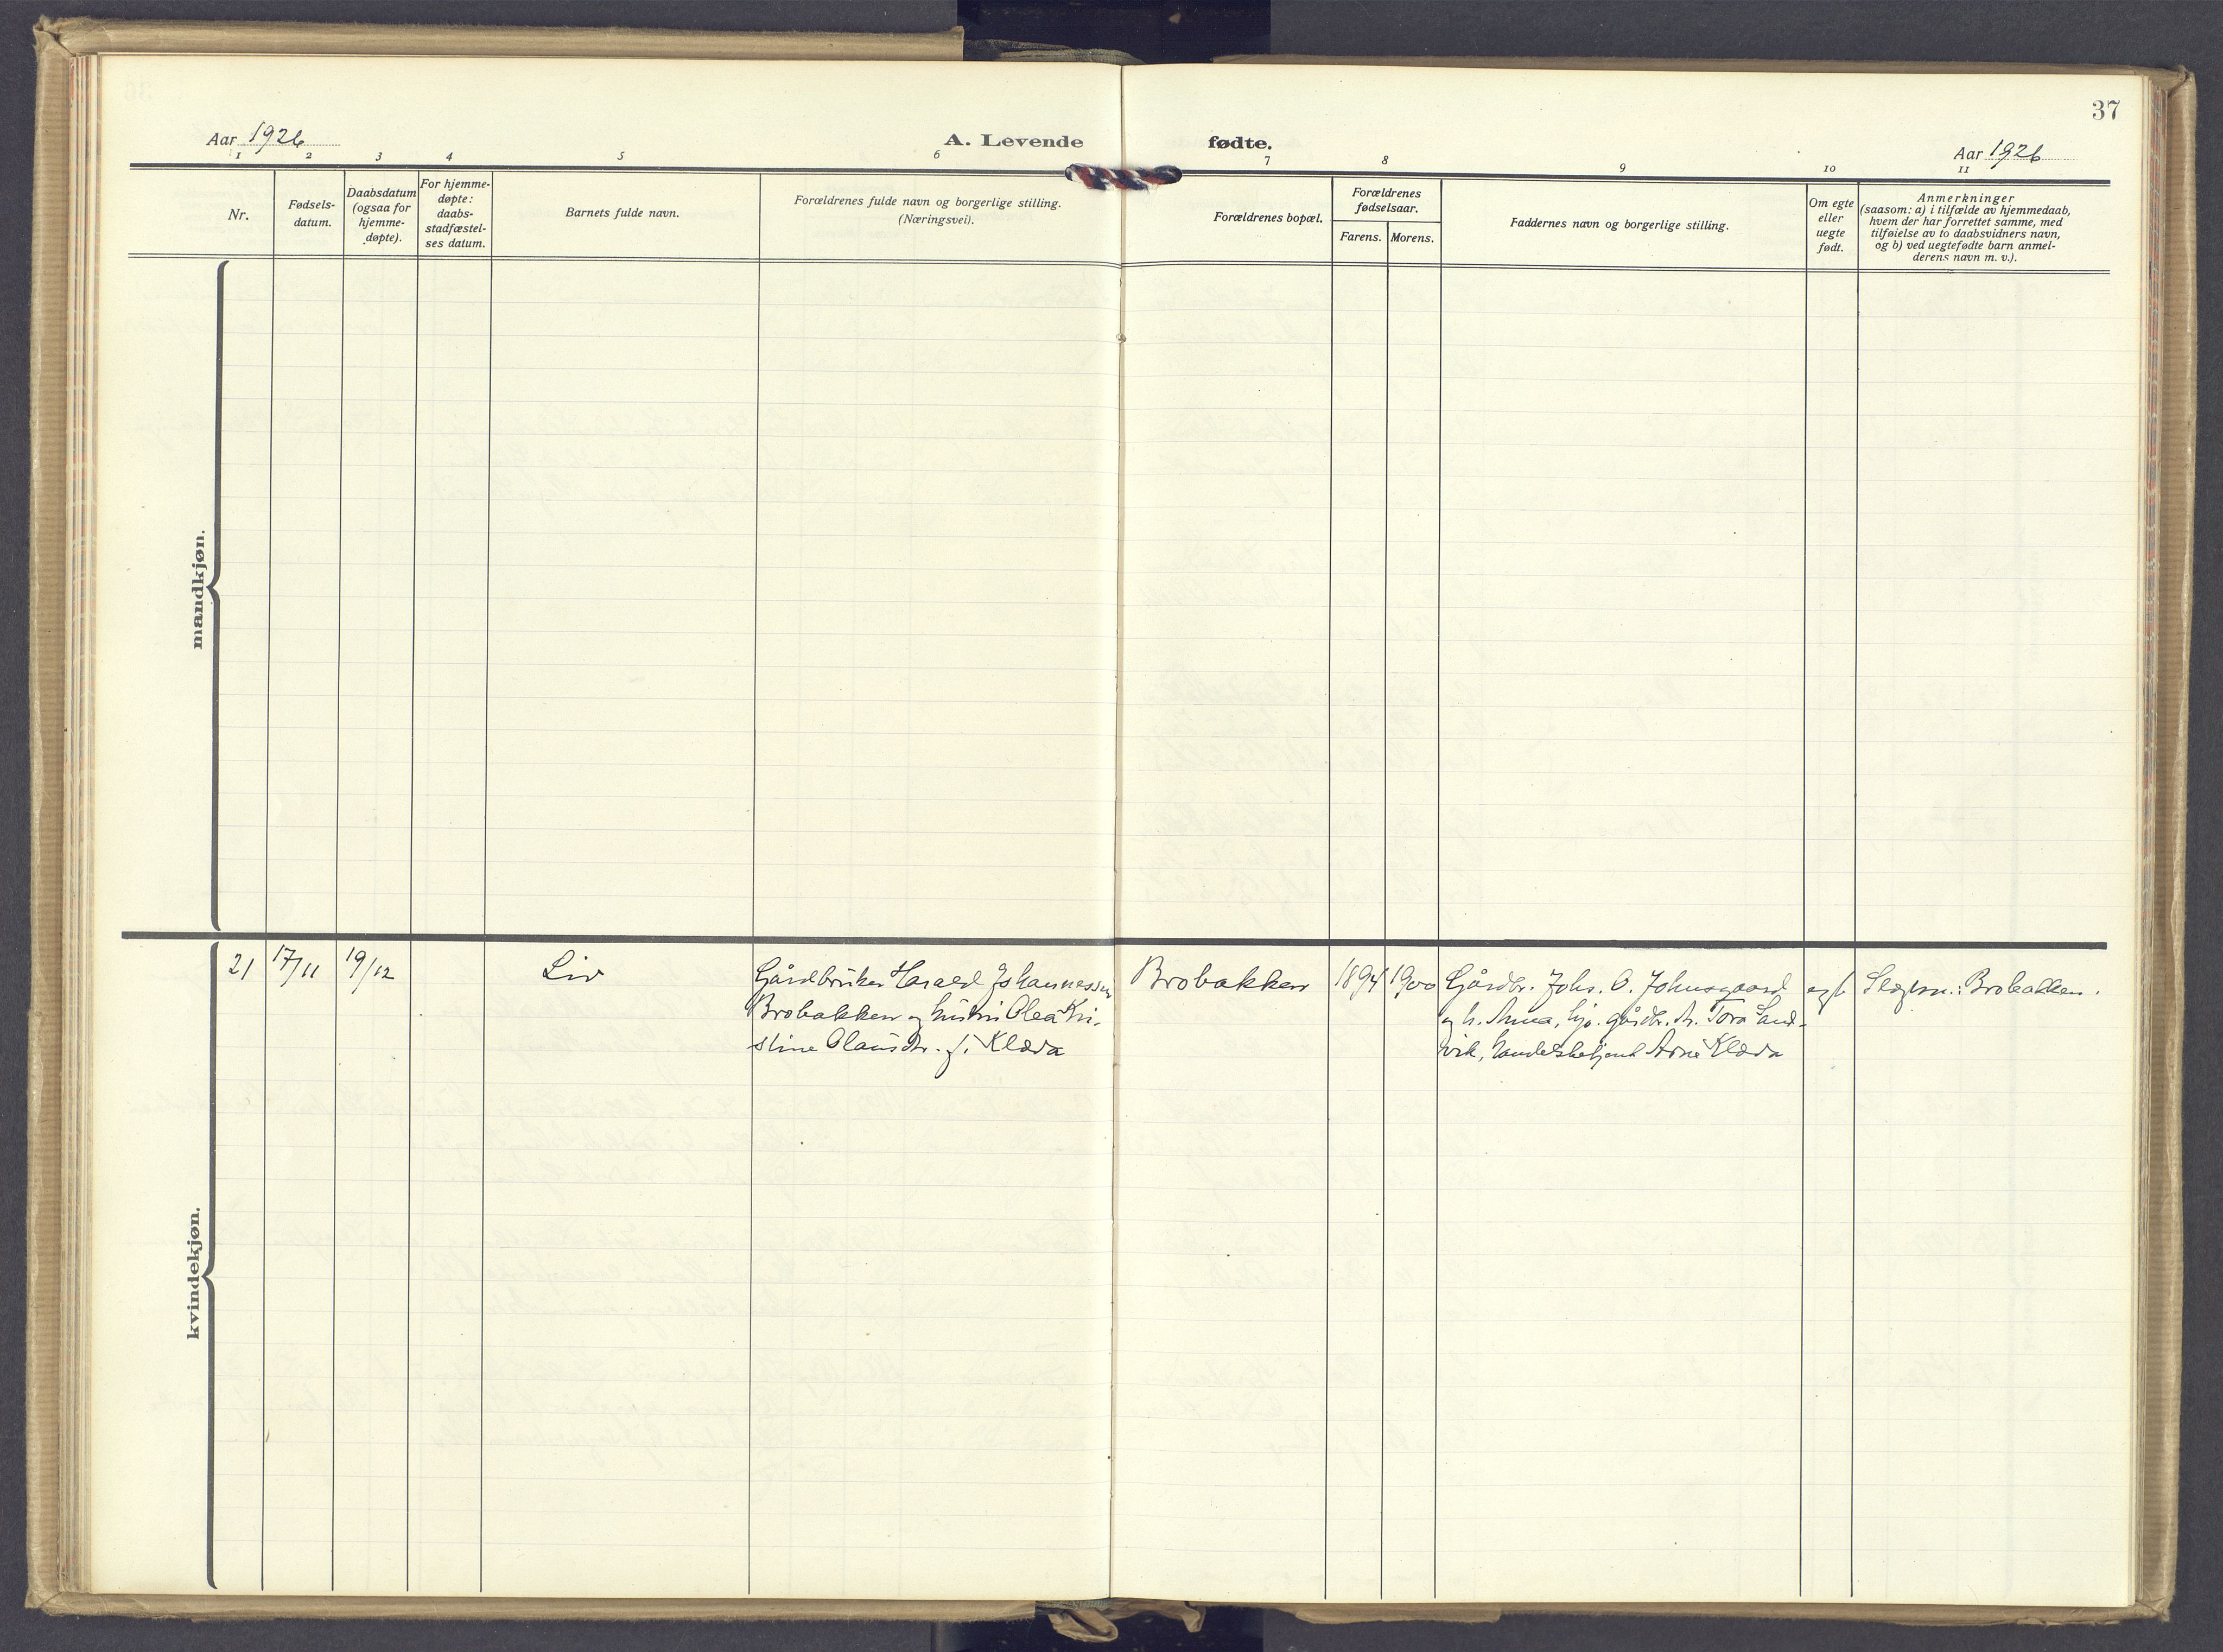 37
Aar 1926
A. Levende fødte.
Aar 1926
1 2 3 4 5 6 7 8 9 10 11
Nr.
Fødsels-
datum.
Daabsdatum
(ogsaa for
hjemme-
døpte).
For hjemme-
døpte:
daabs-
stadfæstel-
ses datum.
Barnets fulde navn.
Forældrenes fulde navn og borgerlige stilling.
(Næringsvei).
Forældrenes bopæl.
Forældrenes
fødselsaar.
Farens. Morens.
Faddernes navn og borgerlige stilling.
Om egte
eller
uegte
født.
Anmerkninger
(saasom: a) i tilfælde av hjemmedaab,
hvem der har forrettet samme, med
tilføielse av to daabsvidners navn,
og b) ved uegtefødte barn anmel-
derens navn m. v.).
mandkjøn.
kvindekjøn.
21
17/11
19/12
Liv
Gårdbruker Harald Johannessen
Brobakken og hustru Olea Kri-
stine Olausdtr. f. Klæva
Brobakken
1894
1900
Gårdbr. Johs. O. Johnsgaard
og h. Anna, gårdbr. Tora Sand-
vik, handelsbetjent Arne Klæva
egte
Slegtsn.: Brobakken.